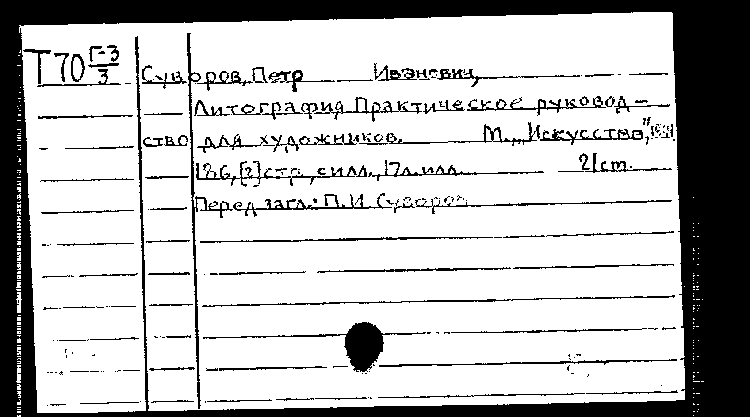 Т70 Г-3/3 Суворов, Петр Иванович,
Литография. Практическое руковод-
ство для художников. М., „Искусство",
[2] стр., с илл., 17 л. илл. 21 ст.
Перед загл.: П. И. Суворов